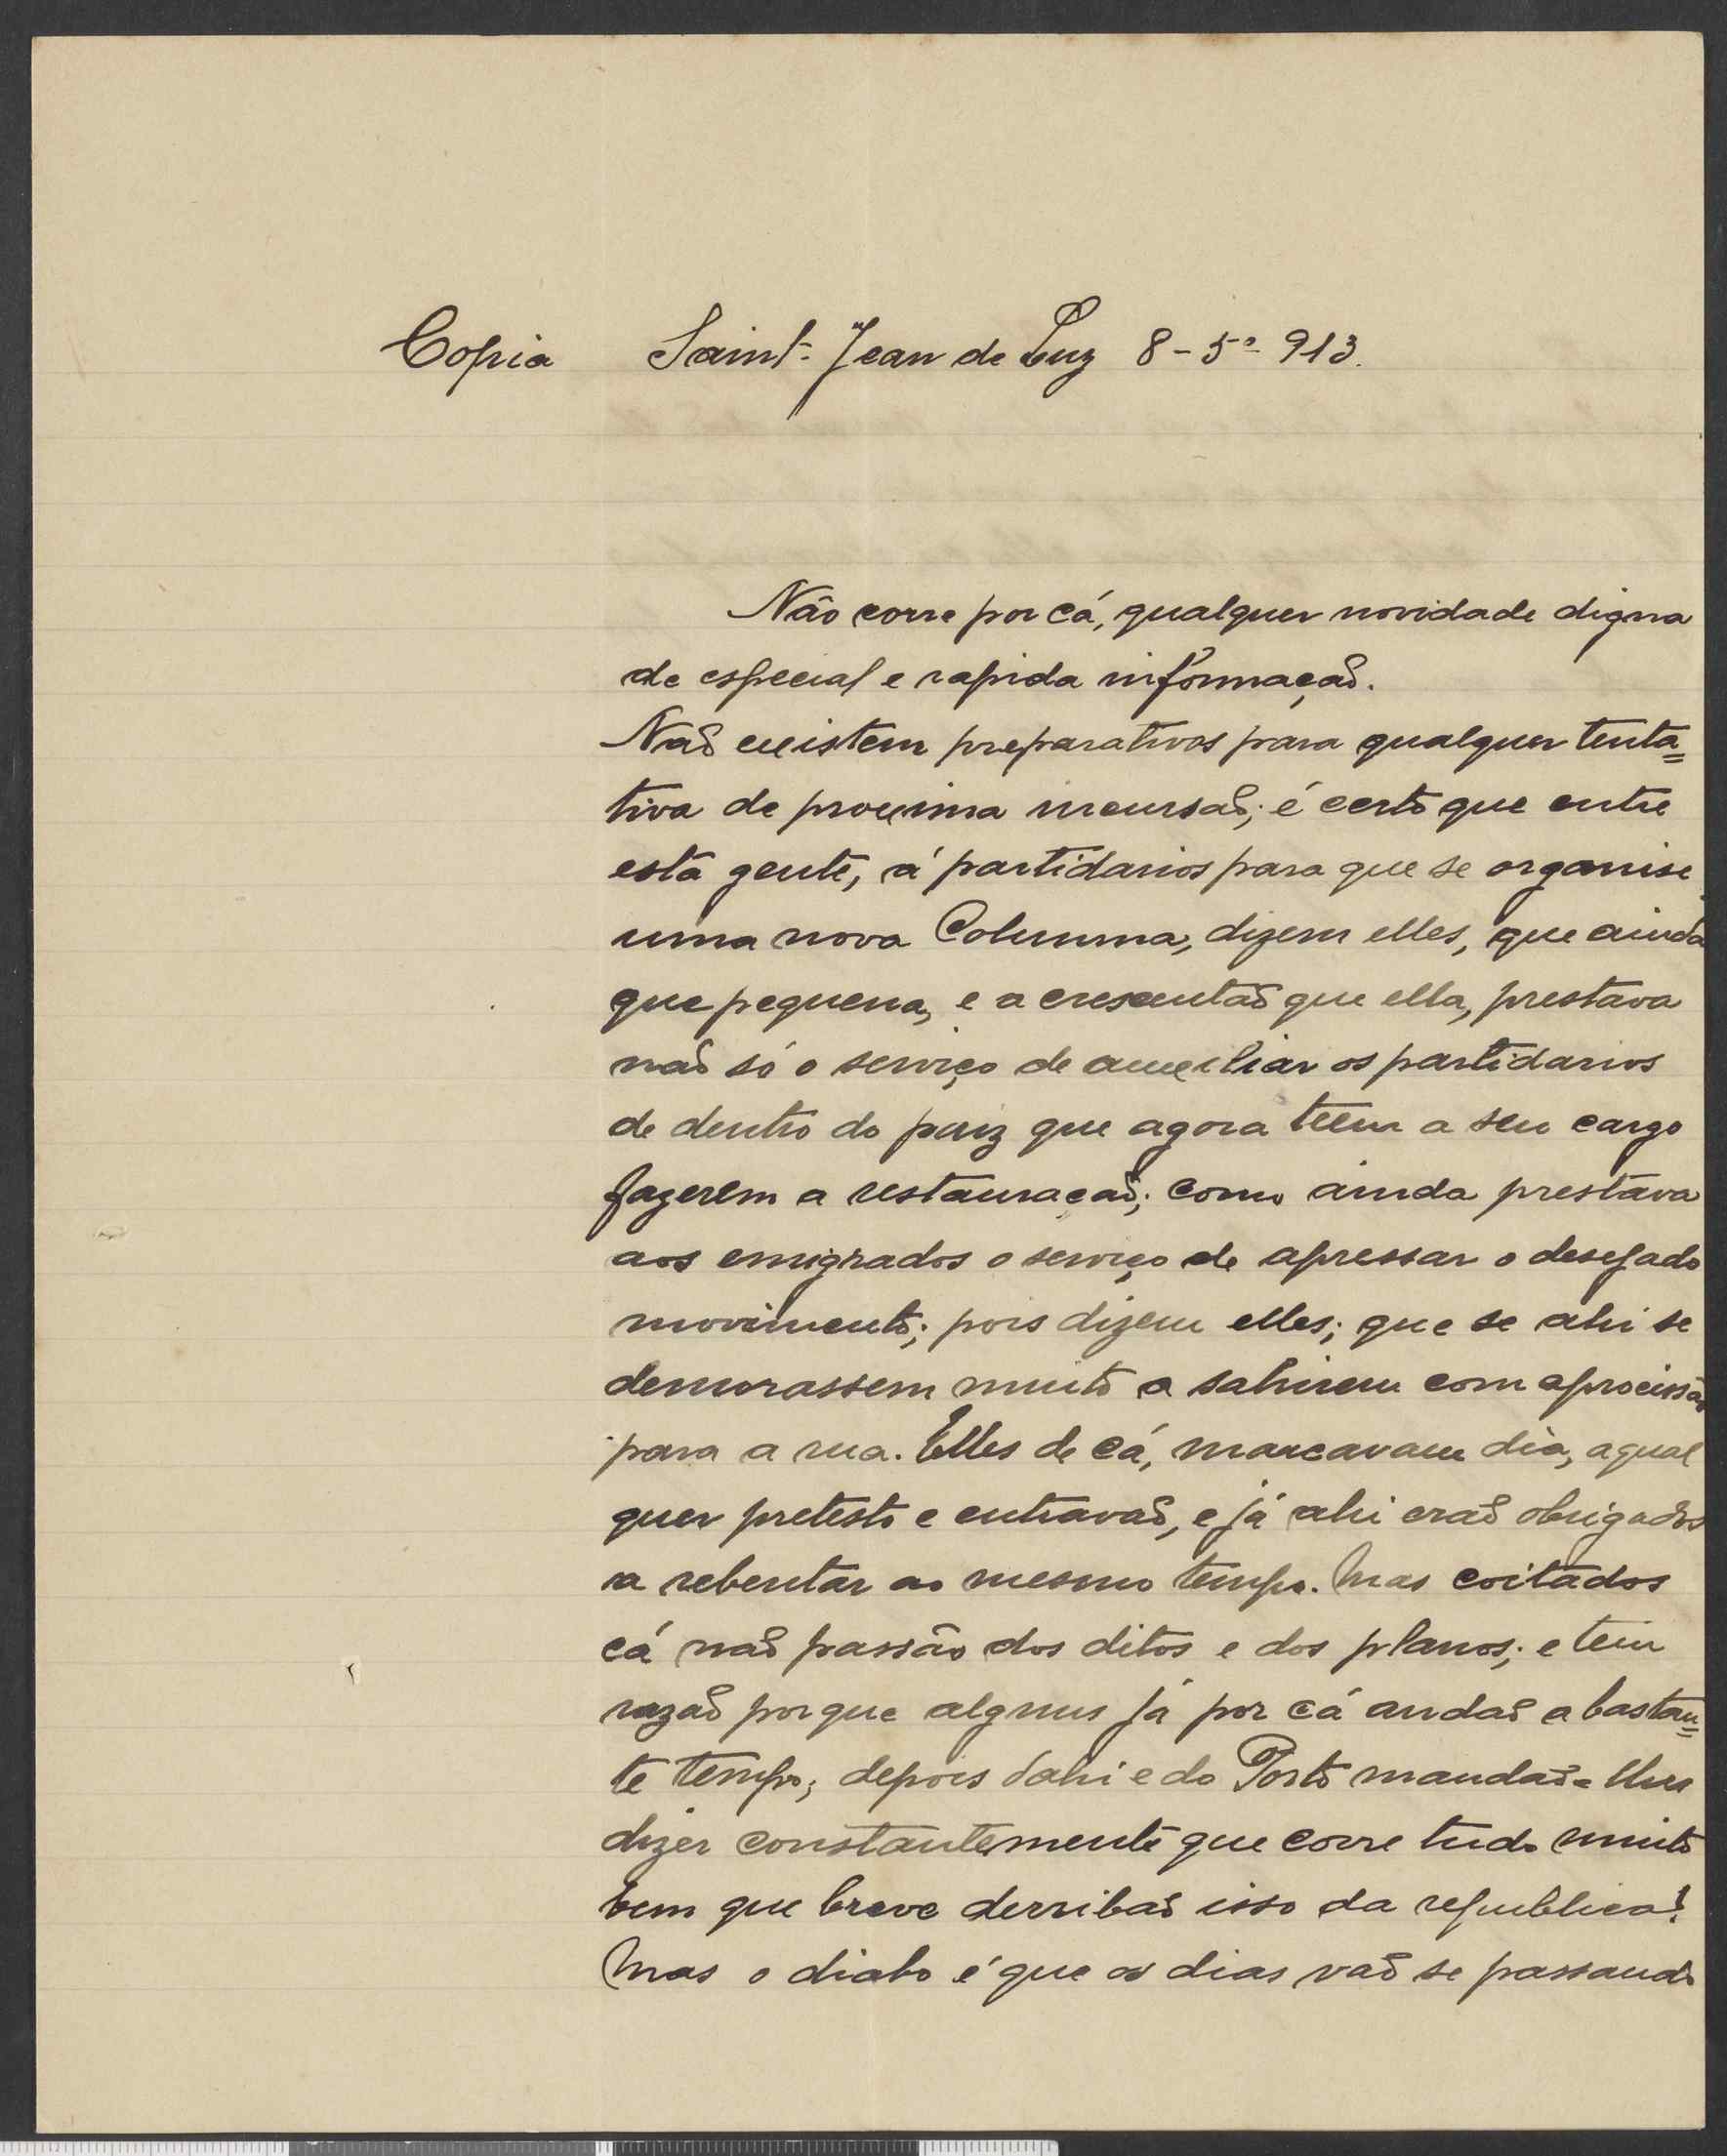 Copia Saint-Jean de Luz 8-5º-913.
Não corre por cá, qualquer novidade digna
de especial e rapida informação.
Não existem preparativos para qualquer tenta=
tiva de proxima incursão; é certo que entre
esta gente, á partidarios para que se organise
uma nova Columna, dizem elles, que ainda
que pequena, e acrescentão que ella, prestava
não só o serviço de auxiliar os partidarios
de dentro do paiz que agora teem a seu cargo
fazerem a restauração; como ainda prestava
aos emigrados o serviço de apressar o desejado
movimento; pois dizem elles; que se ahi se
demorassem muito a sahirem com a procissão
para a rua. Elles de cá, marcavam dia, a qual
quer pretesto e entravão, e já ahi erão obrigados
a rebentar ao mesmo tempo. Mas coitados
cá não passão dos ditos e dos planos; e tem
razão porque alguns já por cá andão a bastan=
te tempo; depois dahi e do Porto mandão-lhes
dizer constantemente que corre tudo muito
bem que breve derribão isso da republica!
Mas o diabo é que os dias vão se passando